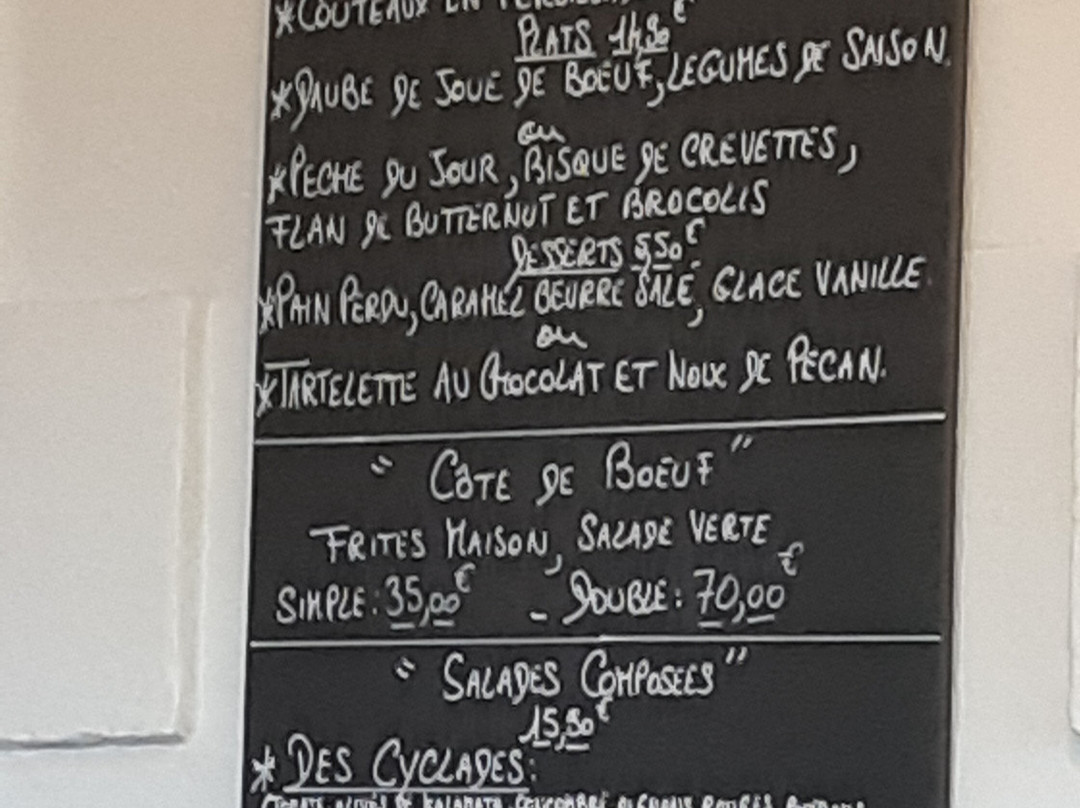 *COUTEAUX EN
PLATS 14,90€
*DAUBE DE JOUE DE BOEUF, LEGUMES DE SAISON.
ou
*PECHE DU JOUR, BISQUE DE CREVETTES,
FLAN DE BUTTERNUT ET BROCOLIS
DESSERTS 5,50€
*PAIN PERDU, CARAMEL BEURRE SALÉ, GLACE VANILLE.
ou
*TARTELETTE AU CHOCOLAT ET NOIX DE PECAN.
" CÔTE DE BOEUF "
FRITES MAISON, SALADE VERTE
SIMPLE: 35,00€ - DOUBLE: 70,00€
" SALADES COMPOSEES "
15,90€
* DES CYCLADES: